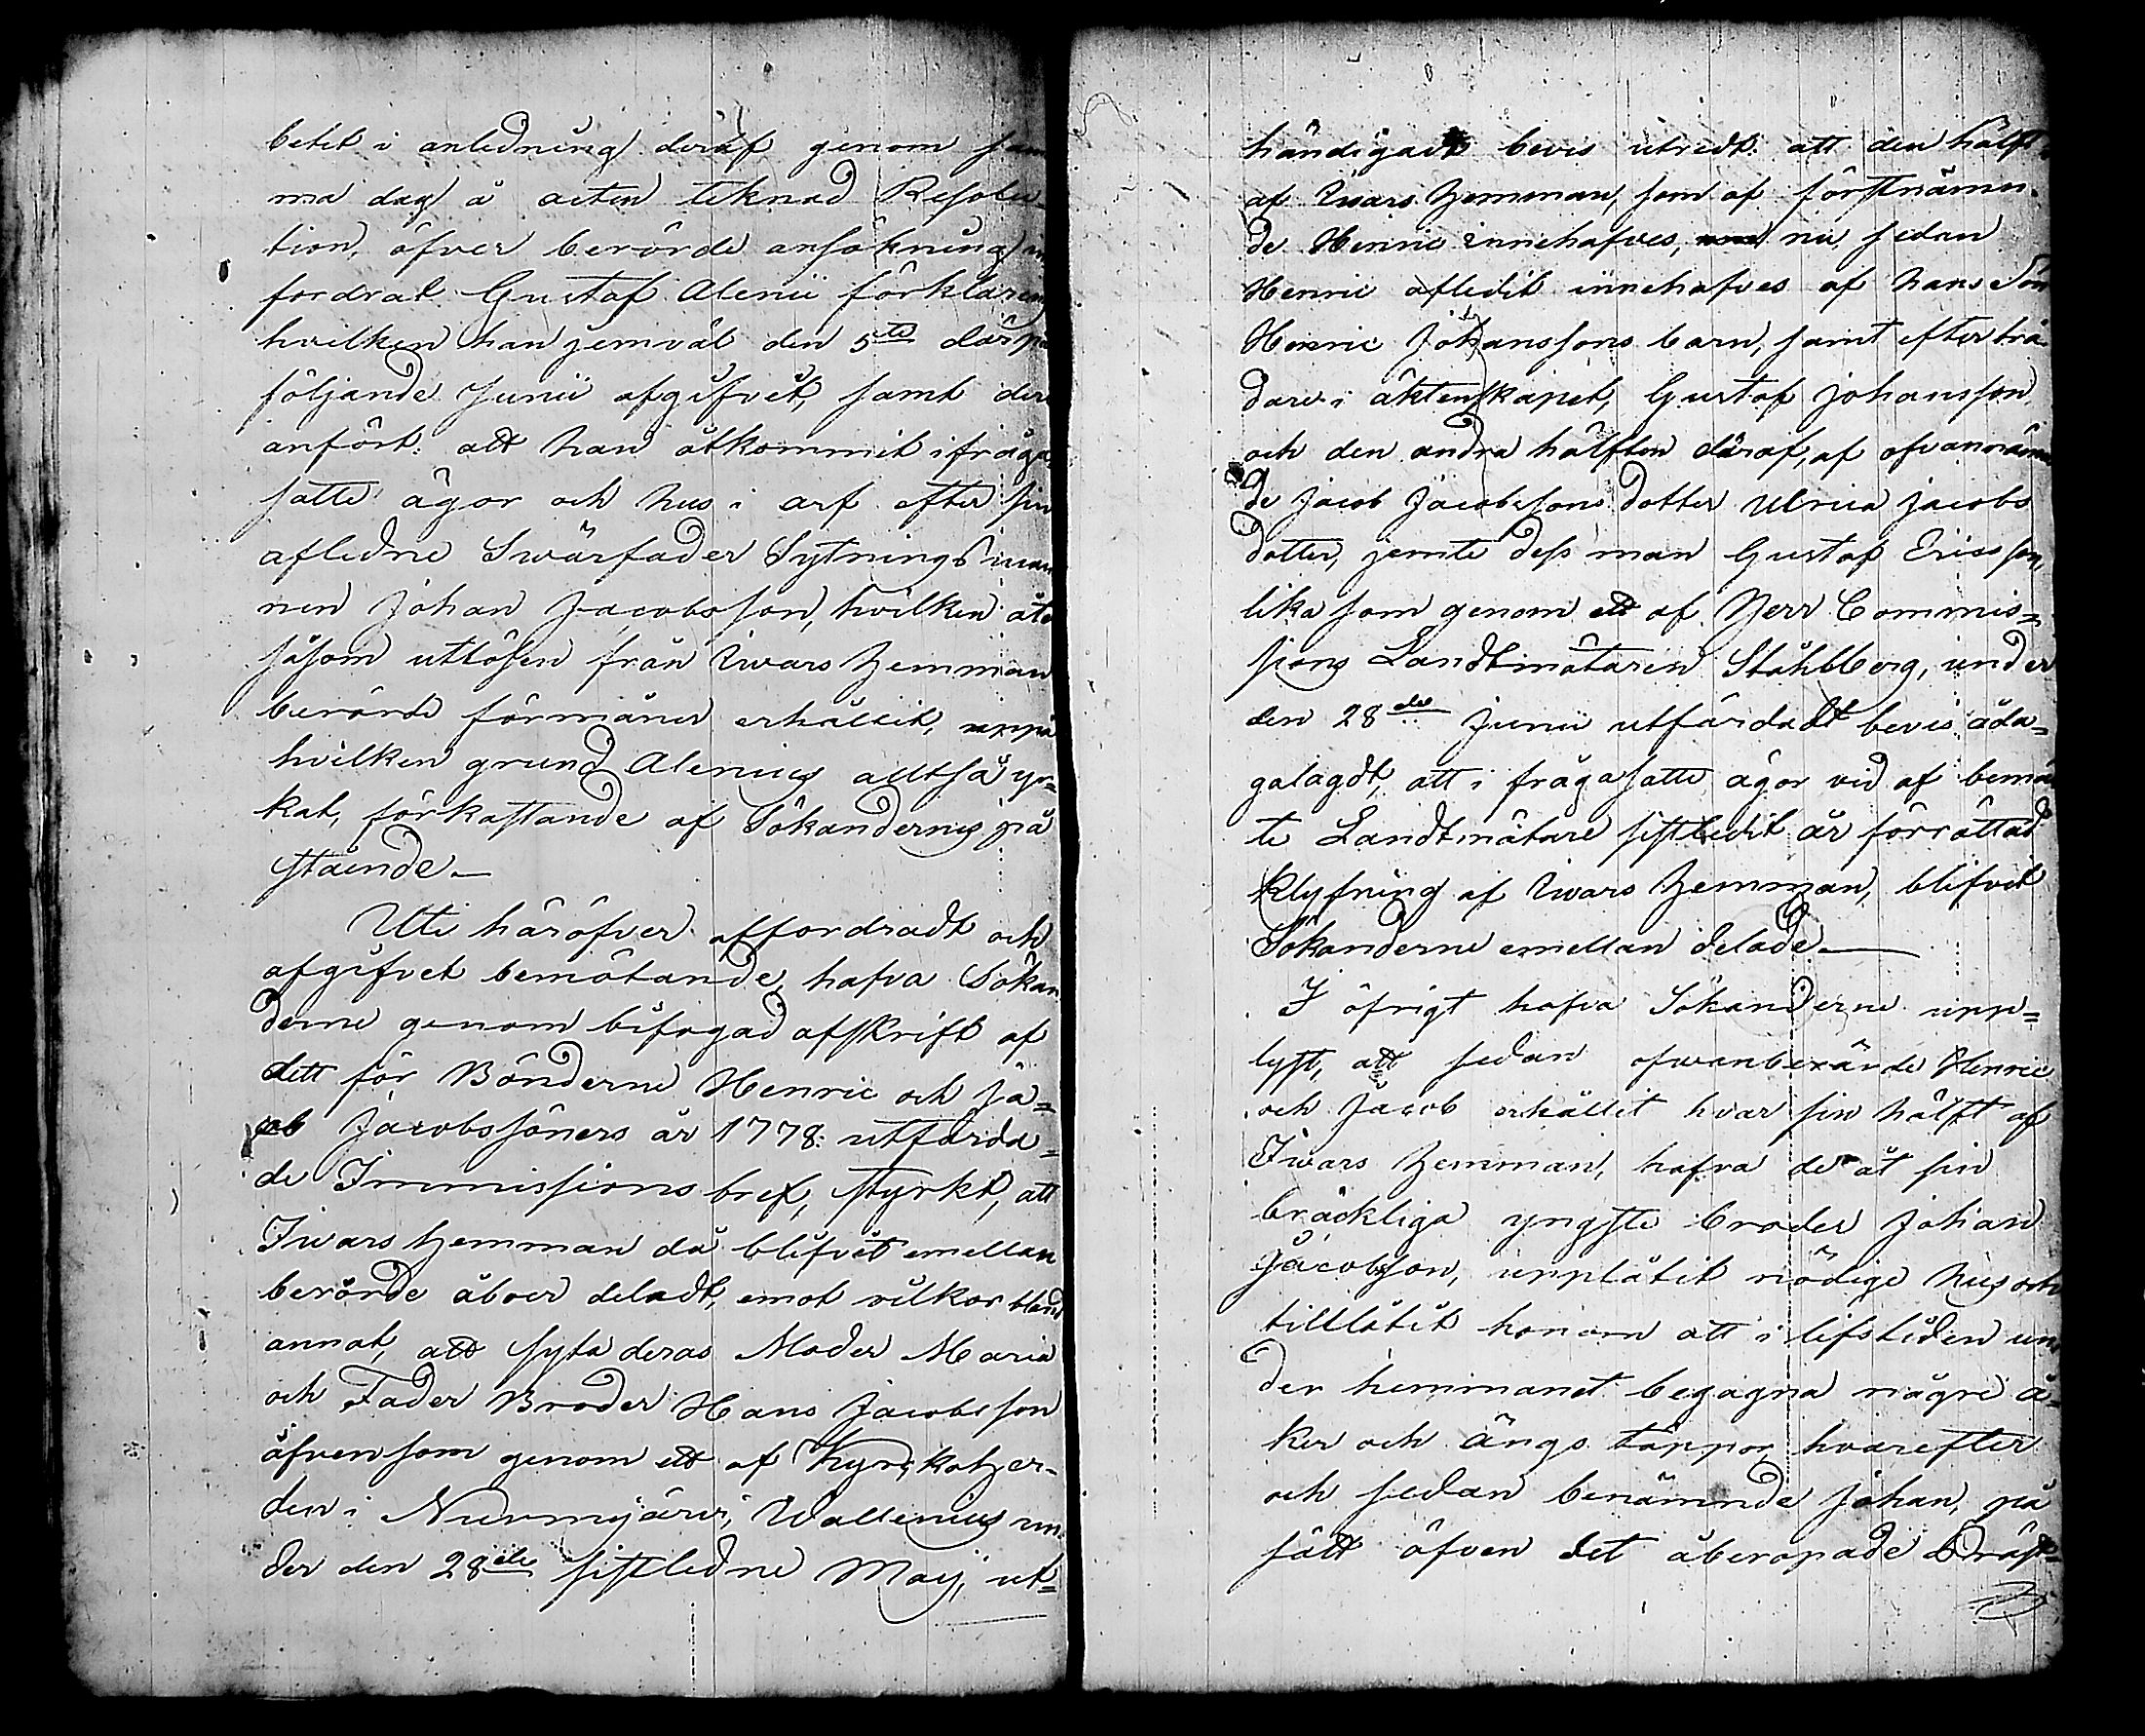 betet i anledning deraf genom sam
ma dag å acten teknad Resolu-
tion, öfver berörde ansökning in
fordrat Gustaf Alenii förklaring
hvilken han jemväl den 5te därpå
följande Junii afgifvet, samt deri
anfört: att han åtkommit ifråga
satte ägor och hus i arf efter sin
afledne Swärfader Sytningsman
nen Johan Jacobsson, hvilken åter
såsom utlösen från Iwars Hemman
berörde förmåner erhållit, uppå
hvilken grund Alenius alltså yr-
kat, förkastande af Sökandernes på
stående.
Uti häröfver affordradt och
afgifvet bemötande, hafva Sökan
derne genom bifogad afskrift af
dett för Bönderne Henric och Ja=
cob Jacobssöners år 1778: utfärda=
de Immissions bref, styrkt, att
Iwars hemman då blifvit emellan
berörde åboer deladt, emot vilkor bland
annat, att syta deras Moder Maria
och Fader Broder Hans Jacobsson
äfvensom genom ett af Kyrckoher-
den i Nurmijärvi, Wallenius un-
der den 28de sistledne Maij, ut=
händigadt bevis utredt: att den hälft
af Iwars Hemman, som af förstnämn-
de Henric innehafves, nu, sedan
Henric aflidit innehafves af hans Son
Henric Johanssons barn, samt efterträ
dare i äktenskapet, Gustaf Johansson,
och den andra hälften däraf, af ofvannämn
de Jacob Jacobssons dotter Ulrica Jacobs
dotter, jemte dess man Gustaf Ericsson,
lika som genom ett af Herr Commis=
sions Landtmätaren Ståhlberg, under
den 28de Junii utfärdadt bevis åda=
galagdt, att i frågasatte ägor vid af bemäl
te Landtmätare sistledit år förrättad
klyfning af Iwars Hemman, blifvit
Sökanderne emellan delade.
I öfrigt hafva Sökanderne upp=
lyst, att sedan ofwanberörde Henric
och Jacob erhållit hvar sin hälft af
Iwars Hemman, hafva de åt sin
bräckliga yngste broder Johan
Jacobsson, upplåtit nödige hus och
tillåtit honom att i lifstiden un
der hemmanet begagna någre å=
ker och ängs täppor, hvarefter
och sedan benämnde Johan, på
sätt äfven det åberopade Präst=